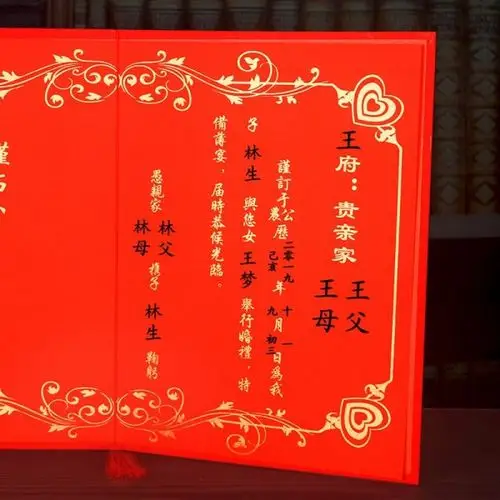 王府：贵亲家
王父
王母
謹訂于公農歷二零一九己亥年十九月一初三日為我
子 林生 與您女 王梦 舉行婚禮，特
備薄宴，届時恭候光臨。
愚親家 林父 林母 携子 林生 鞠躬